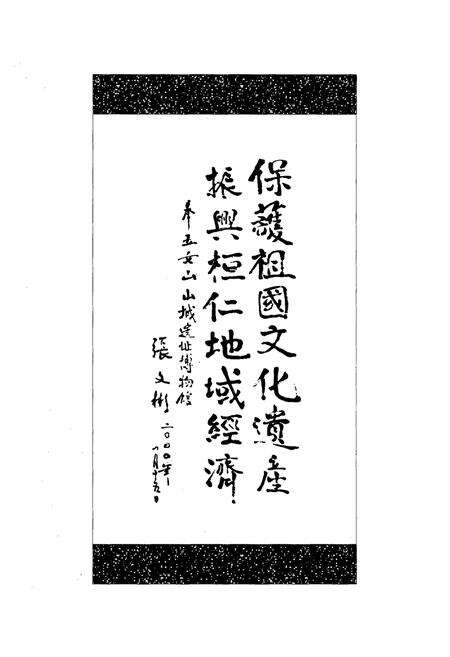 保護祖國文化遺產
振興桓仁地域經濟
奉五女山山城遺址博物館
張文彬 二〇〇〇年
八月十五日